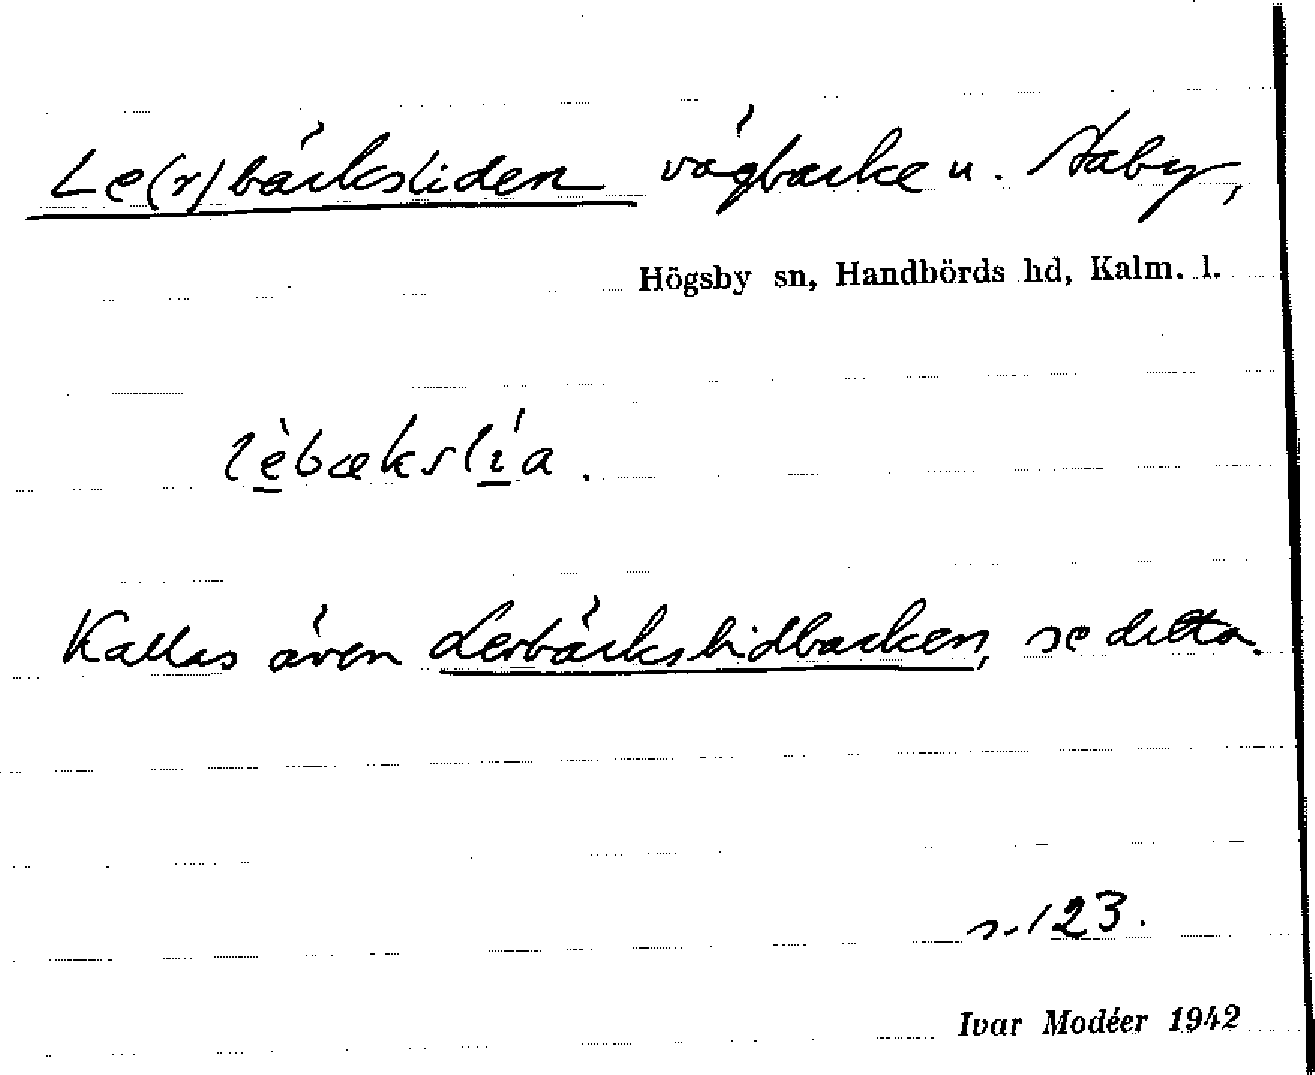 Le(r)bäcksliden vägbacke u. Staby,
Högsby sn, Handbörds hd, Kalm. l.
lèbækslía.
Kallas även Lerbäckslidbacken, se detta.
s. 123.
Ivar Modéer 1942